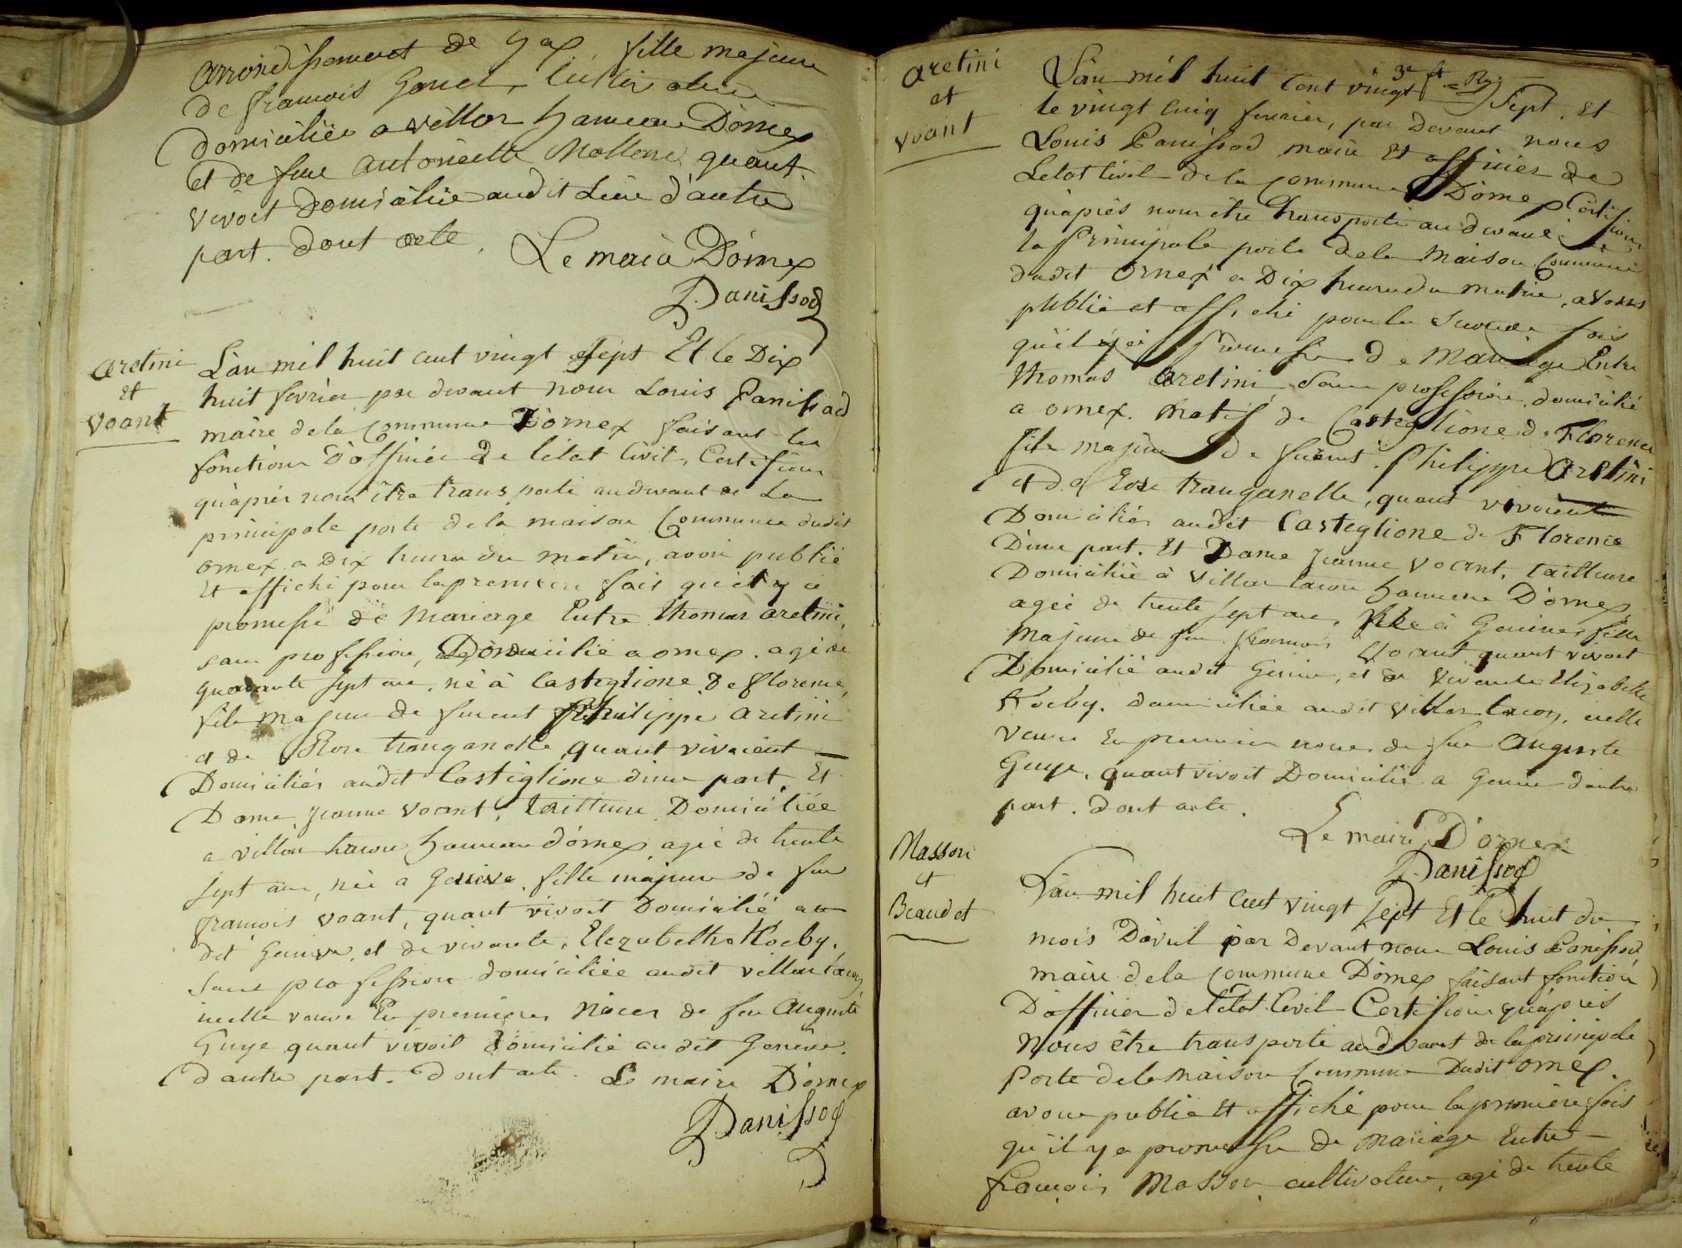 arrondissement de Gex, fille majeure
de francois
domiciliée a villar hameau Dornex
et de feue antoinette quant
vivoit domiciliée audit Lieu d'autre
part. dont acte. Le maire D'ornex
Panissod
aretini
et
Voant
L'an mil huit cent vingt sept Et le Dix
huit fevrier par devant nous Louis Panissod
maire de la Commune D'ornex faisant les
fonctions D'officier de l'état Civil, Certifions
qu'apres nous être transporté audevant de La
principale porte de la maison Commune dudit
ornex a Dix heures du matin, avoir publié
Et affiché pour la premiere fois qu'il y a
promesse de Mariage Entre thomas aretini,
sans profession, Domicilié a ornex. agé de
quarante sept ans, né à Castiglione De florence,
fils majeur de furent philippe aretini
et de Rose tranganelle quant vivoient
Domiciliés audit Castiglione d'une part Et
Dame Jeanne Voant, tailleuse Domiciliée
a villar tacon hameau d'ornex agée de trente
sept ans, née a Genève, fille majeure de feu
francois Voant, quant vivoit Domicilié au
dit Genève, et de vivante, Elezabeth Koeby,
sans profession domiciliée audit villar tacon
icelle veuve En premieres noces de feu Auguste
Guye quant vivoit domicilié audit Genève.
d'autre part. dont acte. Le maire D'ornex
Panissod
aretini
et
voant
3e
L'an mil huit Cent vingt sept, Et
le vingt cinq fevrier, par devant nous
Louis Panissod maire Et officier de
L'etat Civil de la Commune D'ornex Certifions
qu'après nous être transporté audevant de
la principale porte de la maison Commune
dudit ornex a Dix heures du matin, avons
publié et affiché pour la seconde fois
qu'il y a promesse de Mariage Entre
thomas aretini, sans profession, domicilié
a ornex. natif de Casteglione de Florence
fils majeur de furent philippe aretini
et de Rose tranganelle, quant vivoient
Domiciliés audit Casteglione de Florence
D'une part. Et Dame Jeanne Voant, tailleuse
Domiciliée à villar tacon hameau D'ornex
agée de trente sept ans, née à Genève, fille
majeure de feu francois Voant quant vivoit
Domicilié audit Genève, et de vivante Elizabethe
Koeby. domiciliée audit villar tacon, icelle
veuve En premieres noces de feu Auguste
Guye, quant vivoit Domicilié a Genève d'autre
part. dont acte.
Le maire D'ornex
Panissod
Masson
et
Beaudet
L'an mil huit cent vingt sept Et le huit du
mois D'avril par Devant nous Louis Panissod
maire de la Commune D'ornex faisant fonction
D'officier de l'état Civil Certifions qu'après
Nous être transporté audevant de la principale
Porte de la maison Commune Dudit ornex.
avons publié Et affiché pour la première fois
qu'il y a promesse de Mariage Entre
francois Masson, cultivateur, agé de trente